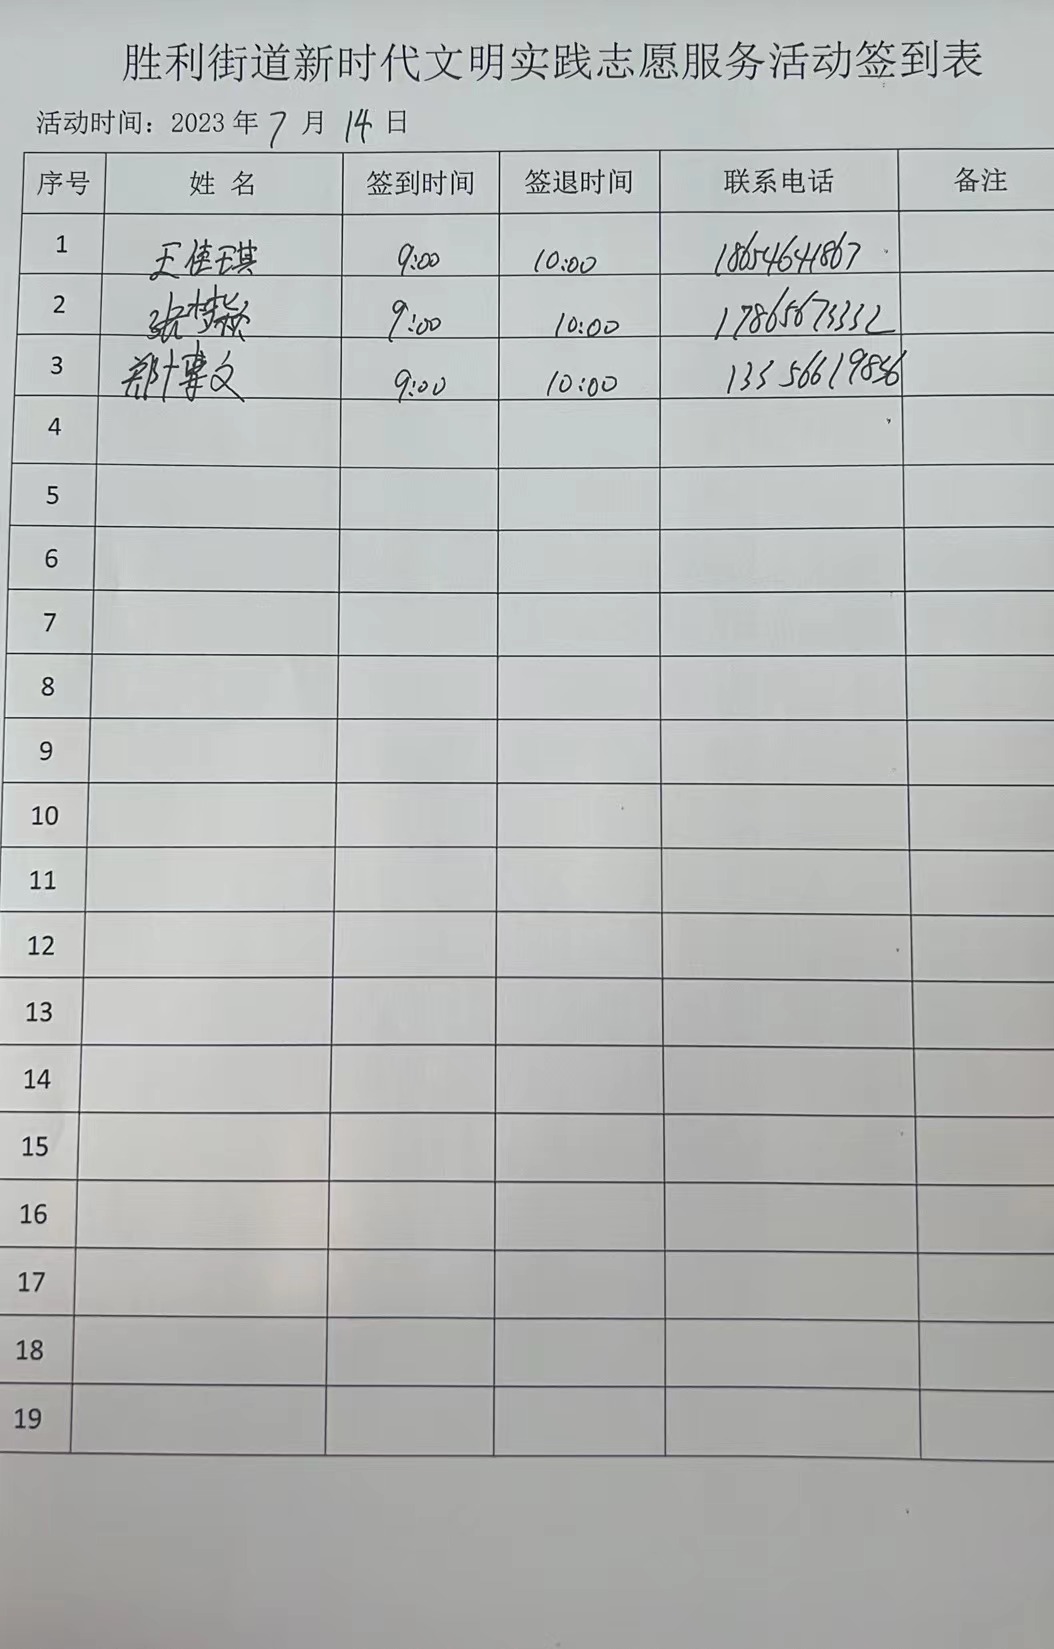 胜利街道新时代文明实践志愿服务活动签到表
活动时间：2023年7月14日
序号 姓 名 签到时间 签退时间 联系电话 备注
1 王佳琪 9:00 10:00 18654641867
2 张梦颖 9:00 10:00 17865673332
3 郑博文 9:00 10:00
4
5
6
7
8
9
10
11
12
13
14
15
16
17
18
19